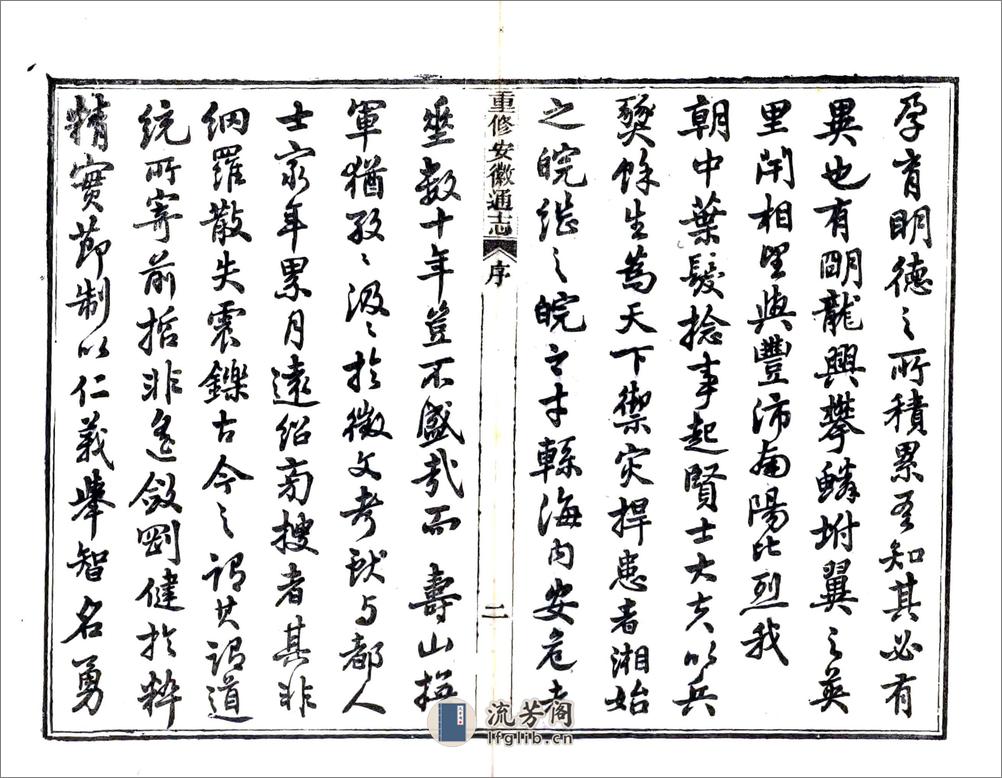 孕育明德之所積累吾知其必有
異也有明龍興攀鱗坿翼之英
里閈相望與豐沛南陽比烈我
朝中葉髮捻事起賢士大夫以兵
燹餘生為天下禦災捍患者湘始
之皖繼之皖之才繇海內安危者
重修安徽通志 序 二
垂數十年豈不盛哉而 壽山撫
軍猶孜孜汲汲於徵文考獻與都人
士窮年累月遠紹旁搜者其非
網羅散失震鑠古今之謂其謂道
統所寄前哲非遙斂剛健於粹
精寶節制以仁義舉智名勇
流芳阁
lfglib.cn